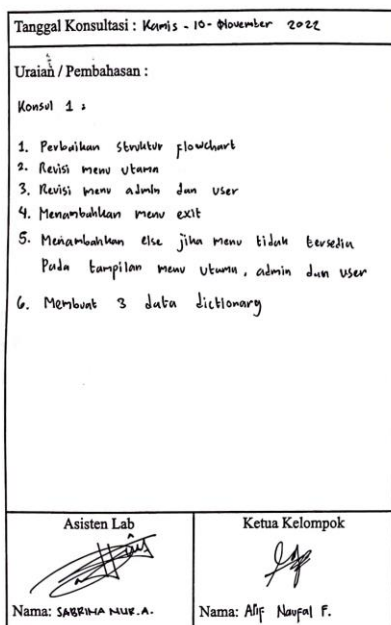 Tanggal Konsultasi : Kamis - 10 - November 2022
Uraian / Pembahasan :
Konsul 1 :
1. Perbaikan struktur flowchart
2. Revisi menu utama
3. Revisi menu admin dan user
4. Menambahkan menu exit
5. Menambahkan else jika menu tidak tersedia
Pada tampilan menu utama, admin dan user
6. Membuat 3 data dictionary
Asisten Lab
Ketua Kelompok
Nama: SABRINA NUR.A.
Nama: Alif Naufal F.